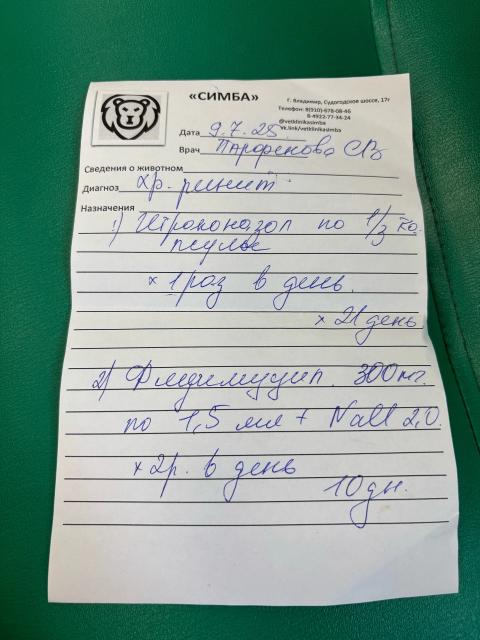 «СИМБА»
Г. Владимир, Судогодское шоссе, 17г
Телефон: 8(910)-678-08-46
8-4922-77-34-24
@vetklinikasimba
Vk.link/vetklinikasimba
Дата 9.7.25
Врач Парфенова СВ
Сведения о животном
Диагноз хр. ринит
Назначения
1) Итраконазол по 1/3 ка-
псулы
× 1 раз в день.
× 21 день
2) Флуимуцил 300мг.
по 1,5 мл + NaCl 2,0.
× 2р. в день
10 дн.